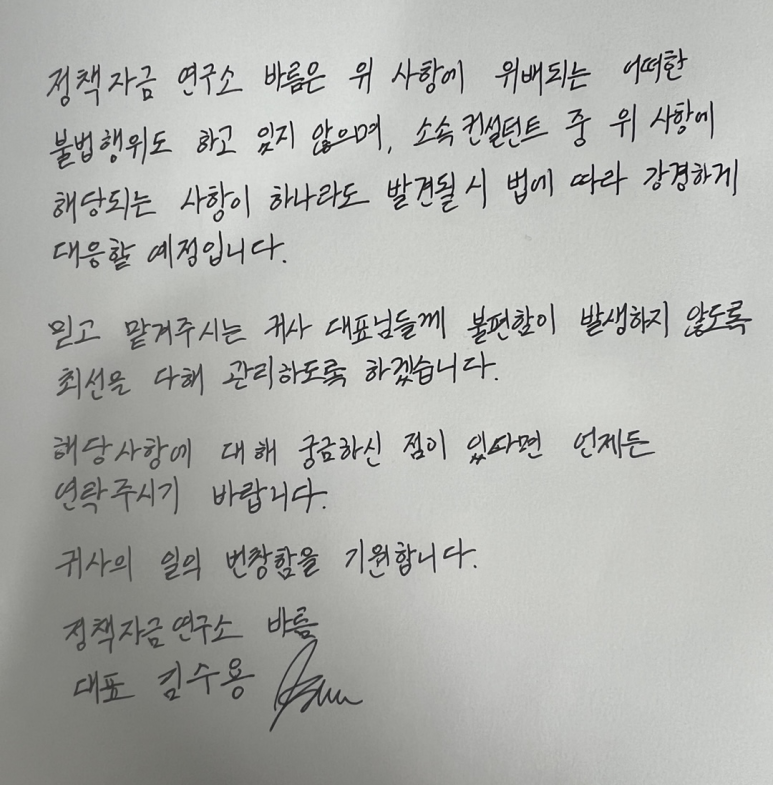 정책자금 연구소 바름은 위 사항에 위배되는 어떠한
불법행위도 하고 있지 않으며, 소속컨설턴트 중 위 사항에
해당되는 사항이 하나라도 발견될 시 법에 따라 강경하게
대응할 예정입니다.
믿고 맡겨주시는 귀사 대표님들께 불편함이 발생하지 않도록
최선을 다해 관리하도록 하겠습니다.
해당사항에 대해 궁금하신 점이 있다면 언제든
연락주시기 바랍니다.
귀사의 일의 번창함을 기원합니다.
정책자금연구소 바름
대표 김수용